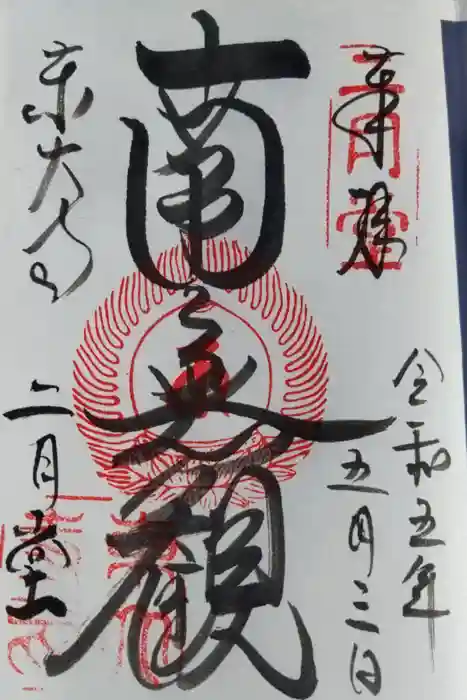 奉拝
二月堂
令和五年
五月三日
南無観
東大寺
二月堂